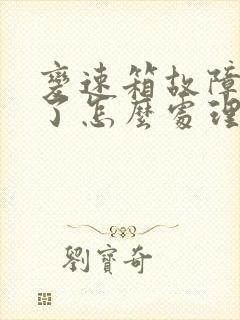 變速箱故障
了怎麼處理
劉寶奇